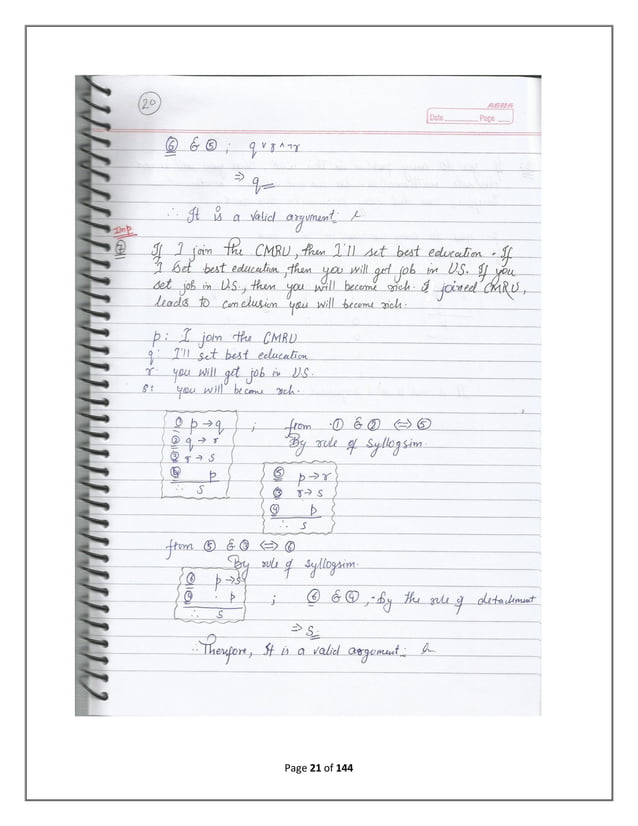 20
ABBA
Date Page
⑥ & ⑤ ; q ∨ r ∧ ¬r
⇒ q
∴ It is a valid argument.
Imp
⑦ If I join the CMRU, then I'll get best education. If
I get best education, then you will get job in US. If you
get job in U.S., then you will become rich. I joined CMRU,
leads to conclusion you will become rich.
p: I join the CMRU
q: I'll get best education
r: you will get job in U.S.
s: you will become rich.
① p → q ; from ① & ② ⟺ ⑤
② q → r By rule of syllogsim.
③ r → s
④ p
∴ s
⑤ p → r
③ r → s
④ p
∴ s
from ⑤ & ③ ⟺ ⑥
By rule of syllogsim.
⑥ p → s
④ p ; ⑥ & ④, By the rule of detachment
∴ s
⇒ s.
∴ Therefore, It is a valid argument.
Page 21 of 144